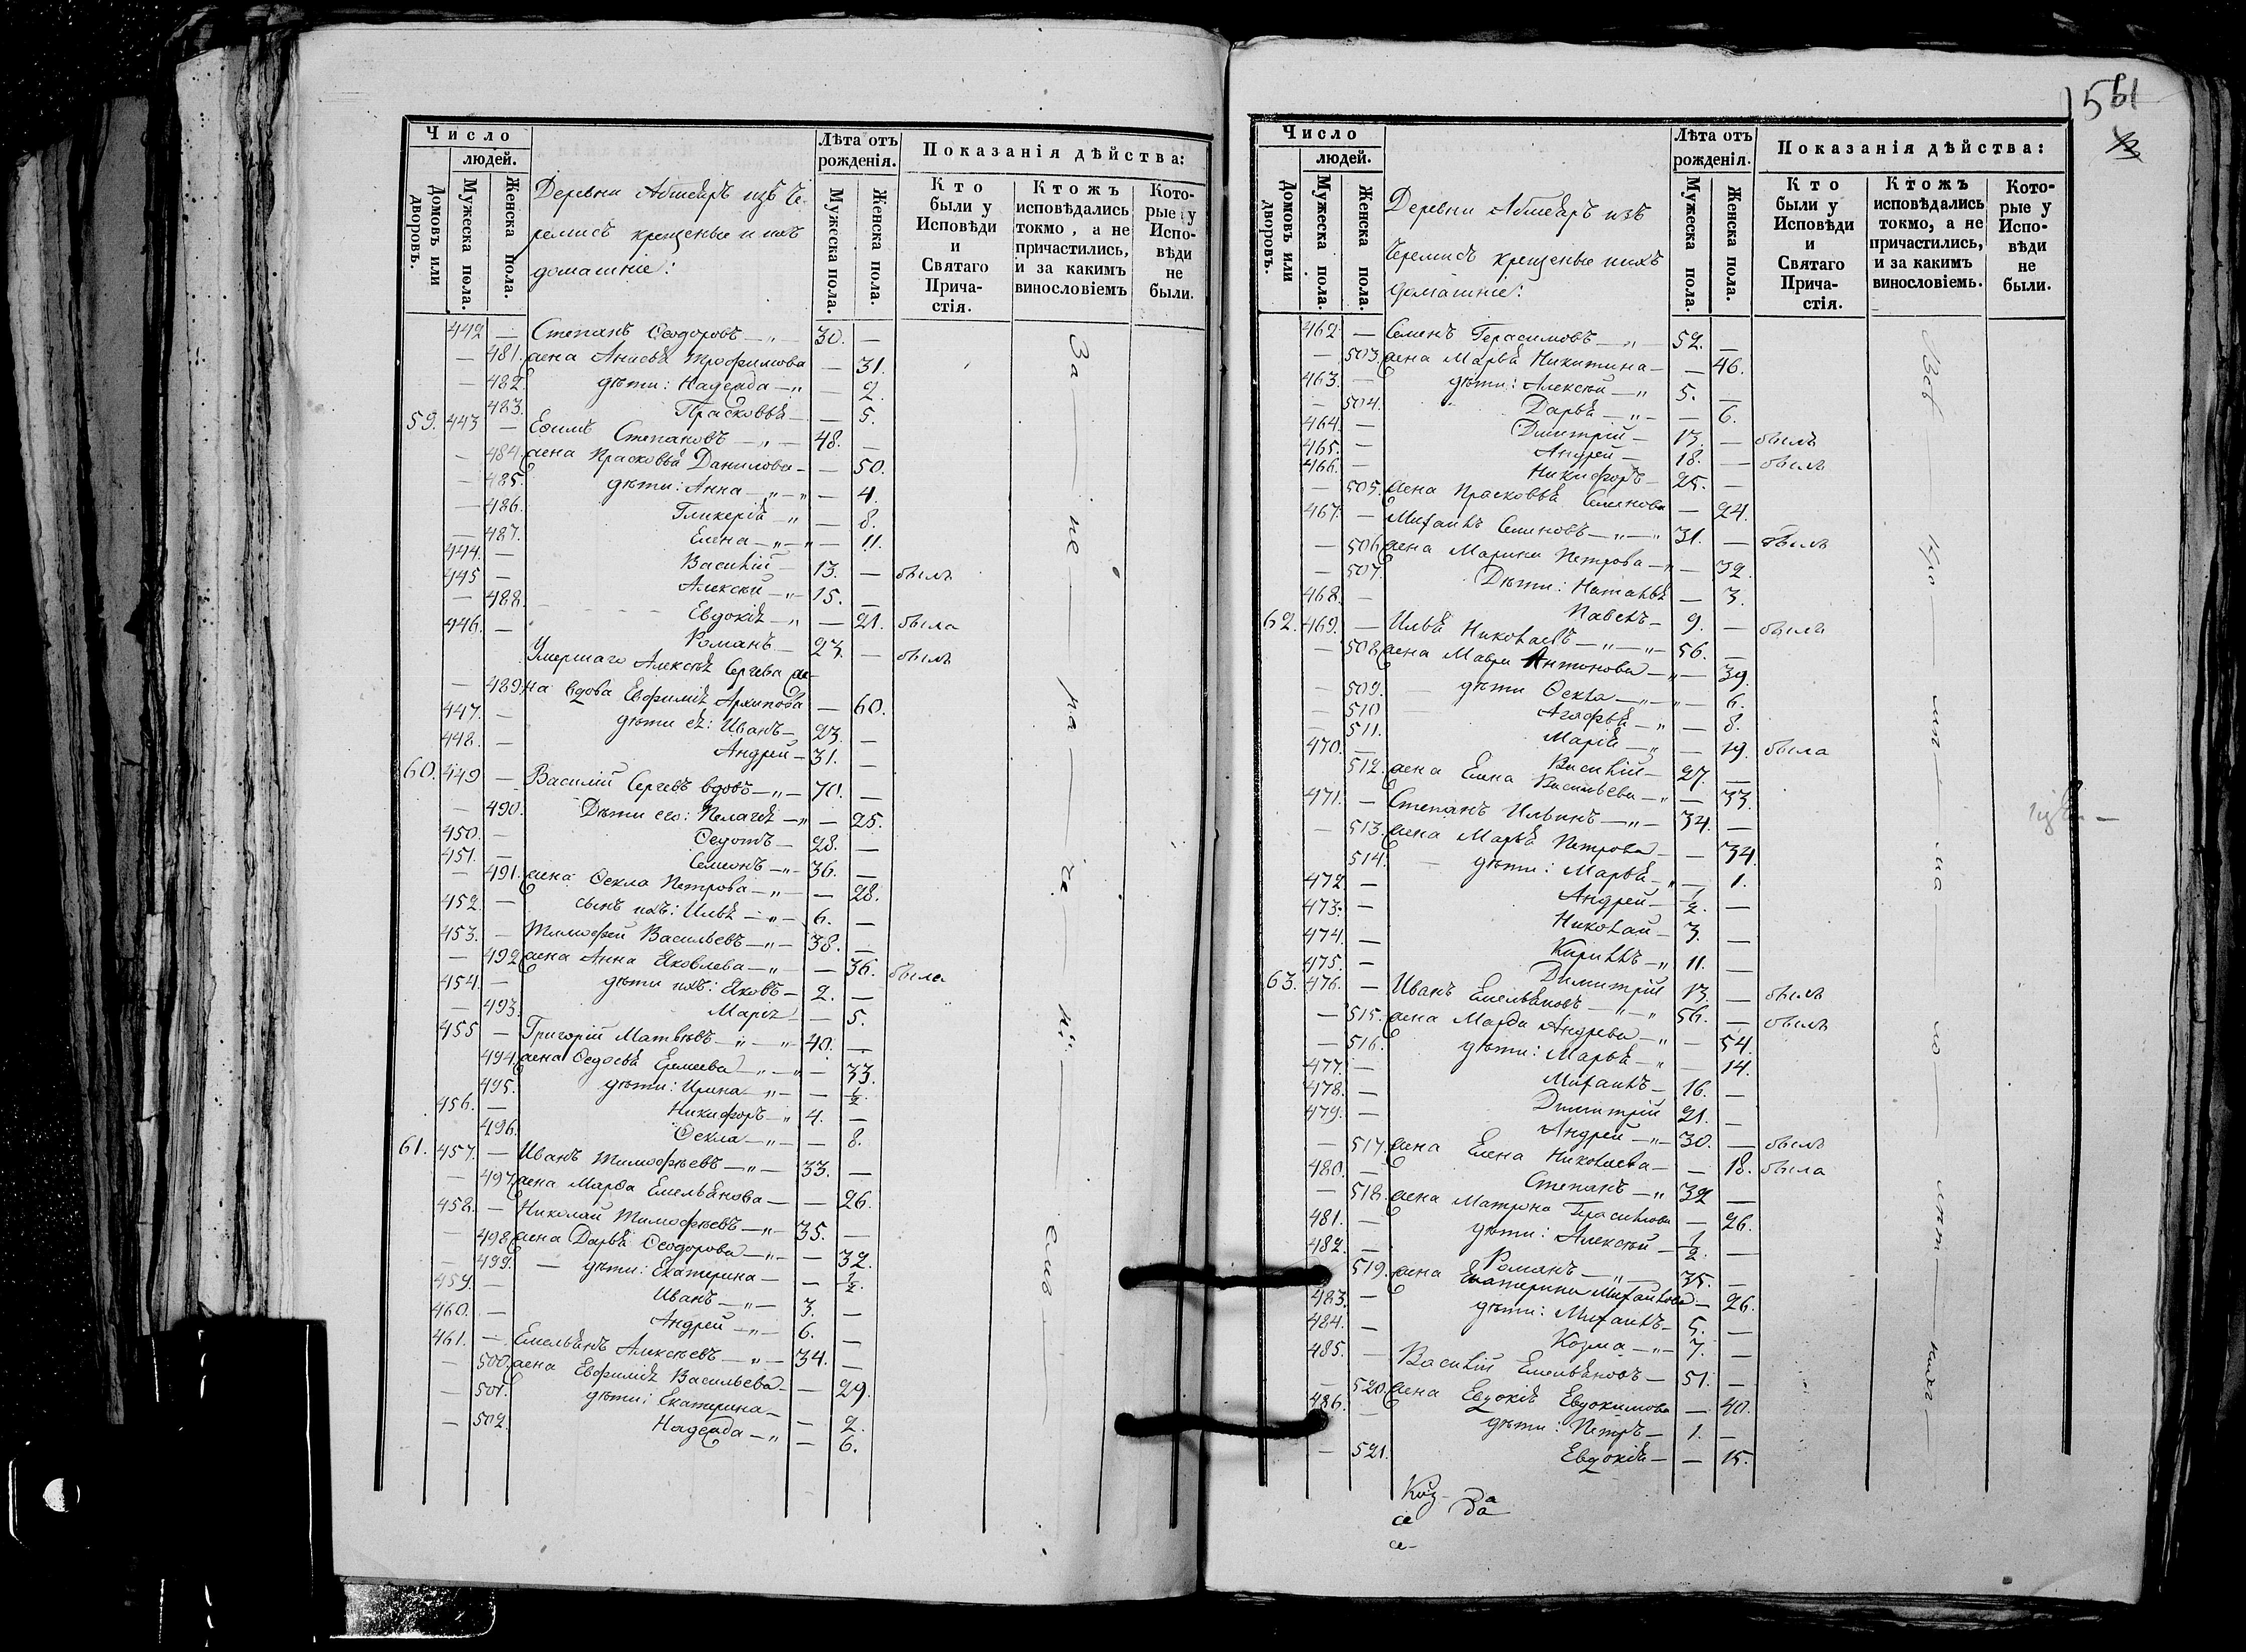 Число
людей.
Домовъ или дворовъ.
Мужеска пола.
Женска пола.
Деревни Абшеяръ изъ Че-
ремисъ крещеные и ихъ
домашніе:
Лѣта отъ
рожденія.
Мужеска пола.
Женска пола.
Показанія дѣйства:
Кто
были у
Исповѣди
и
Святаго
Прича-
стія.
Ктожъ
исповѣдались
токмо, а не
причастились,
и за какимъ
винословіемъ
Кото-
рые у
Испо-
вѣди
не
были.
442 — Степанъ Ѳеодоровъ — „ — 30. —
— 481. жена Анисья Трофимова — 31.
— 482. дѣти: Надежда — „ — 2.
483. Прасковья — — 5.
59. 443 — Ефимъ Степановъ — „ — 48. —
— 484. жена Прасковья Данилова — — 50.
— 485. дѣти: Анна — „ — „ — 4.
— 486. Гликерія — „ — 8.
— 487. Елена — „ — „ — 11.
444. — Василій — 13. — былъ
445 — Алексѣй — „ — 15. —
— 488. Евдокія — „ — 21. была
446. — Романъ — 23. — былъ
Умершаго Алексѣя Сергѣева же-
— 489. на вдова Евфимія Архипова — 60.
447. — дѣти ея: Иванъ — 23. —
448. — Андрей — 31. —
60. 449 — Василій Сергѣевъ вдовъ — „ — 70. —
— 490. Дѣти его: Пелагея — „ — 25.
450. — Ѳедотъ — 28. —
451. — Семенъ — „ — 36. —
— 491. жена Ѳекла Петрова — „ — — 28.
452. — сынъ ихъ: Илья — „ — 6. —
453. — Тимофей Васильевъ — „ — 38. —
— 492 жена Анна Яковлева — „ — — 36. была
454. — дѣти ихъ: Яковъ — 2. —
— 493. Марѳа — 5.
455 — Григорій Матвѣевъ — „ — „ 40. —
494. жена Ѳедосья Еремеева — „ — „ — 33.
495. дѣти: Ирина „ — — ½.
456. — Никифоръ — „ 4. —
496. Ѳекла — „ — — 8.
61. 457. — Иванъ Тимофѣевъ — „ — 33. —
— 497 жена Марѳа Емельянова — — 26.
458. — Николай Тимофѣевъ — „ — 35. —
— 498 жена Дарья Ѳеодорова — „ — — 32.
— 499. — дѣти: Екатерина — — ½.
459. — Иванъ — „ — 3. —
460. — Андрей — „ — 6. —
461. — Емельянъ Алексѣевъ — „ — 34. —
— 500. жена Евфимія Васильева — — 29.
— 501. дѣти: Екатерина — — 2.
— 502. Надежда — „ — 6.
За — не — ра — че — ні —
561
Число
людей.
Домовъ или дворовъ.
Мужеска пола.
Женска пола.
Деревни Абшеяръ изъ
Черемисъ крещеные и ихъ
домашніе:
Лѣта отъ
рожденія.
Мужеска пола.
Женска пола.
Показанія дѣйства:
Кто
были у
Исповѣди
и
Святаго
Прича-
стія.
Ктожъ
исповѣдались
токмо, а не
причастились,
и за какимъ
винословіемъ.
Кото-
рые у
Испо-
вѣди
не
были.
462 — Семенъ Герасимовъ — „ — 52. —
— 503. жена Марья Никитина — — 46.
463. — дѣти: Алексѣй — „ 5. —
— 504. Дарья — „ — — 6.
464. — Димитрій — 13. — былъ
465. — Андрей — 18. — былъ
466. — Никифоръ — 25. —
— 505. жена Прасковья Семенова — 24.
467. — Михаилъ Семеновъ — „ — „ 31. — былъ
— 506 жена Марина Петрова — „ — 32.
— 507. Дѣти: Наталья — 3.
468. — Павелъ — 9. — былъ
62. 469. — Илья Николаевъ — „ — „ — 56. —
— 508. жена Мавра Антонова — „ — 39.
— 509. дѣти Ѳекла — „ — „ — 6.
— 510 Агафья — „ — 8.
— 511. Марія — „ — 19. была
470. — Василій — 27. —
512. жена Елена Васильева — „ — 33.
471. — Степанъ Ильинъ — „ — 34. —
— 513. жена Марья Петрова — — 34.
514. — дѣти: Марья — „ — 1.
472. — Андрей — ½. —
473. — Николай — 3. —
474. — Кириллъ — „ 11. —
475. — Димитрій 13. — былъ
63. 476. — Иванъ Емельяновъ — „ — „ 56. — былъ
— 515. жена Марѳа Андреева — „ — 54.
— 516. дѣти: Марья — „ — 14.
477. — Михаилъ — 16. —
478. — Димитрій 21. —
479. — Андрей — „ — 30. — былъ
— 517. жена Елена Николаева — — 18. была
480. — Степанъ — „ 32 —
— 518. жена Матрона Герасимова — 26.
481. — дѣти: Алексѣй — ½. —
482. — Романъ — „ — 35. —
519. жена Екатерина Михаилова — 26.
483. — дѣти: Михаилъ — 5. —
484. — Козма — „ — 7. —
485. — Василій Емельяновъ — 51. —
— 520. жена Евдокія Евдокимова — 40.
486. — дѣти: Петръ — 1. —
— 521. Евдокія — — 15.